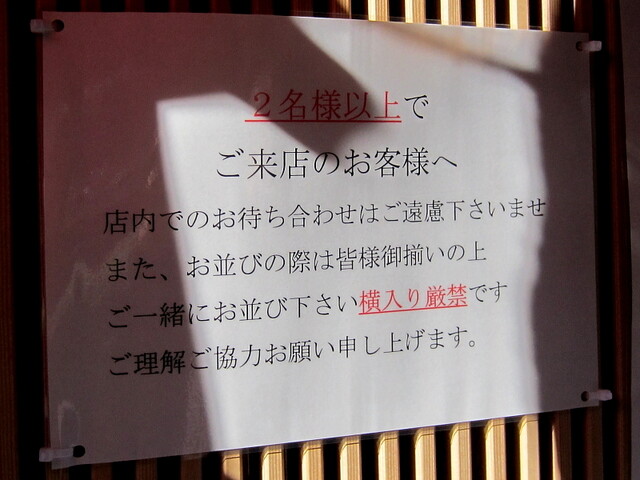 ２名様以上で
ご来店のお客様へ
店内でのお待ち合わせはご遠慮下さいませ
また、お並びの際は皆様御揃いの上
ご一緒にお並び下さい横入り厳禁です
ご理解ご協力お願い申し上げます。